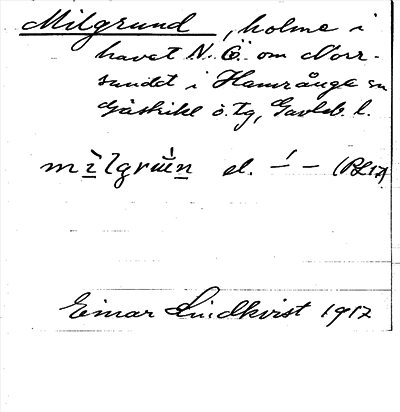 Milgrund, holme i
havet N. Ö. om Norr-
sundet i Hamrånge sn
Gästrikl ö. tg, Gävleb. l.
el. — (RL17)
Einar Lindkvist 1917